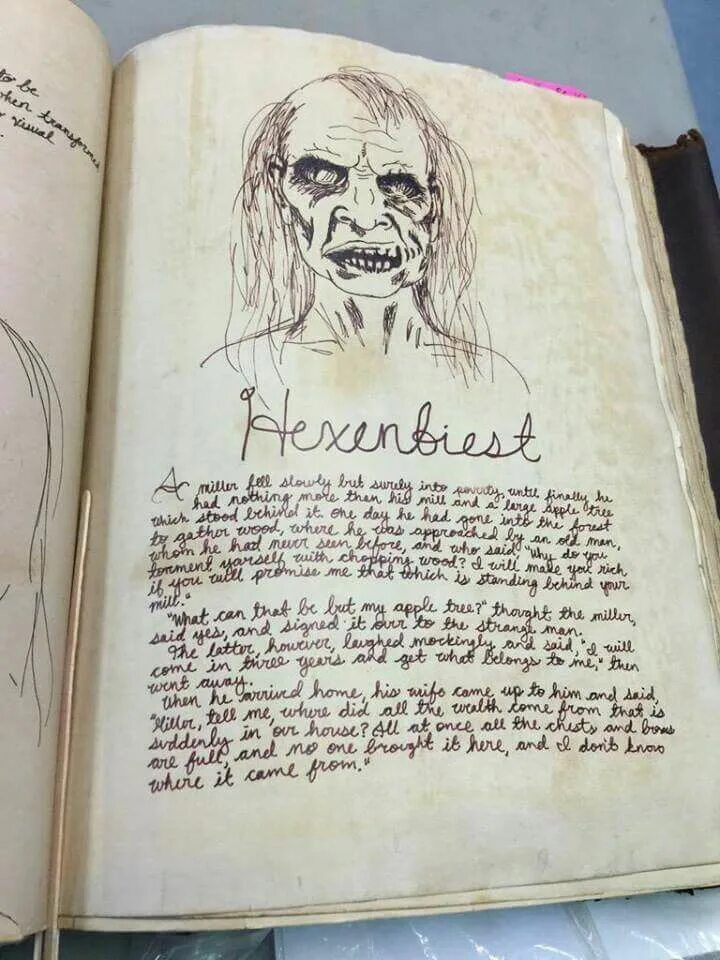 to be
when transformed
visual
Hexenbiest
A miller fell slowly but surely into poverty, until finally he
had nothing more than his mill and a large apple tree
which stood behind it. One day he had gone into the forest
to gather wood, where he was approached by an old man,
whom he had never seen before, and who said "Why do you
torment yarself with chopping wood? I will make you rich
if you will promise me that which is standing behind your
mill."
"What can that be but my apple tree?" thovght the miller,
said yes, and signed it ovr to the strange man.
The latter, however, laughed mockingly and said, "I will
come in three years and get what belongs to me," then
went away.
When he arrived home, his wife came up to him and said,
"Miller, tell me, where did all the wealth come from that is
suddenly in ovr house? All at once all the chests and boxes
are full, and no one brovght it here, and I don't know
where it came from."